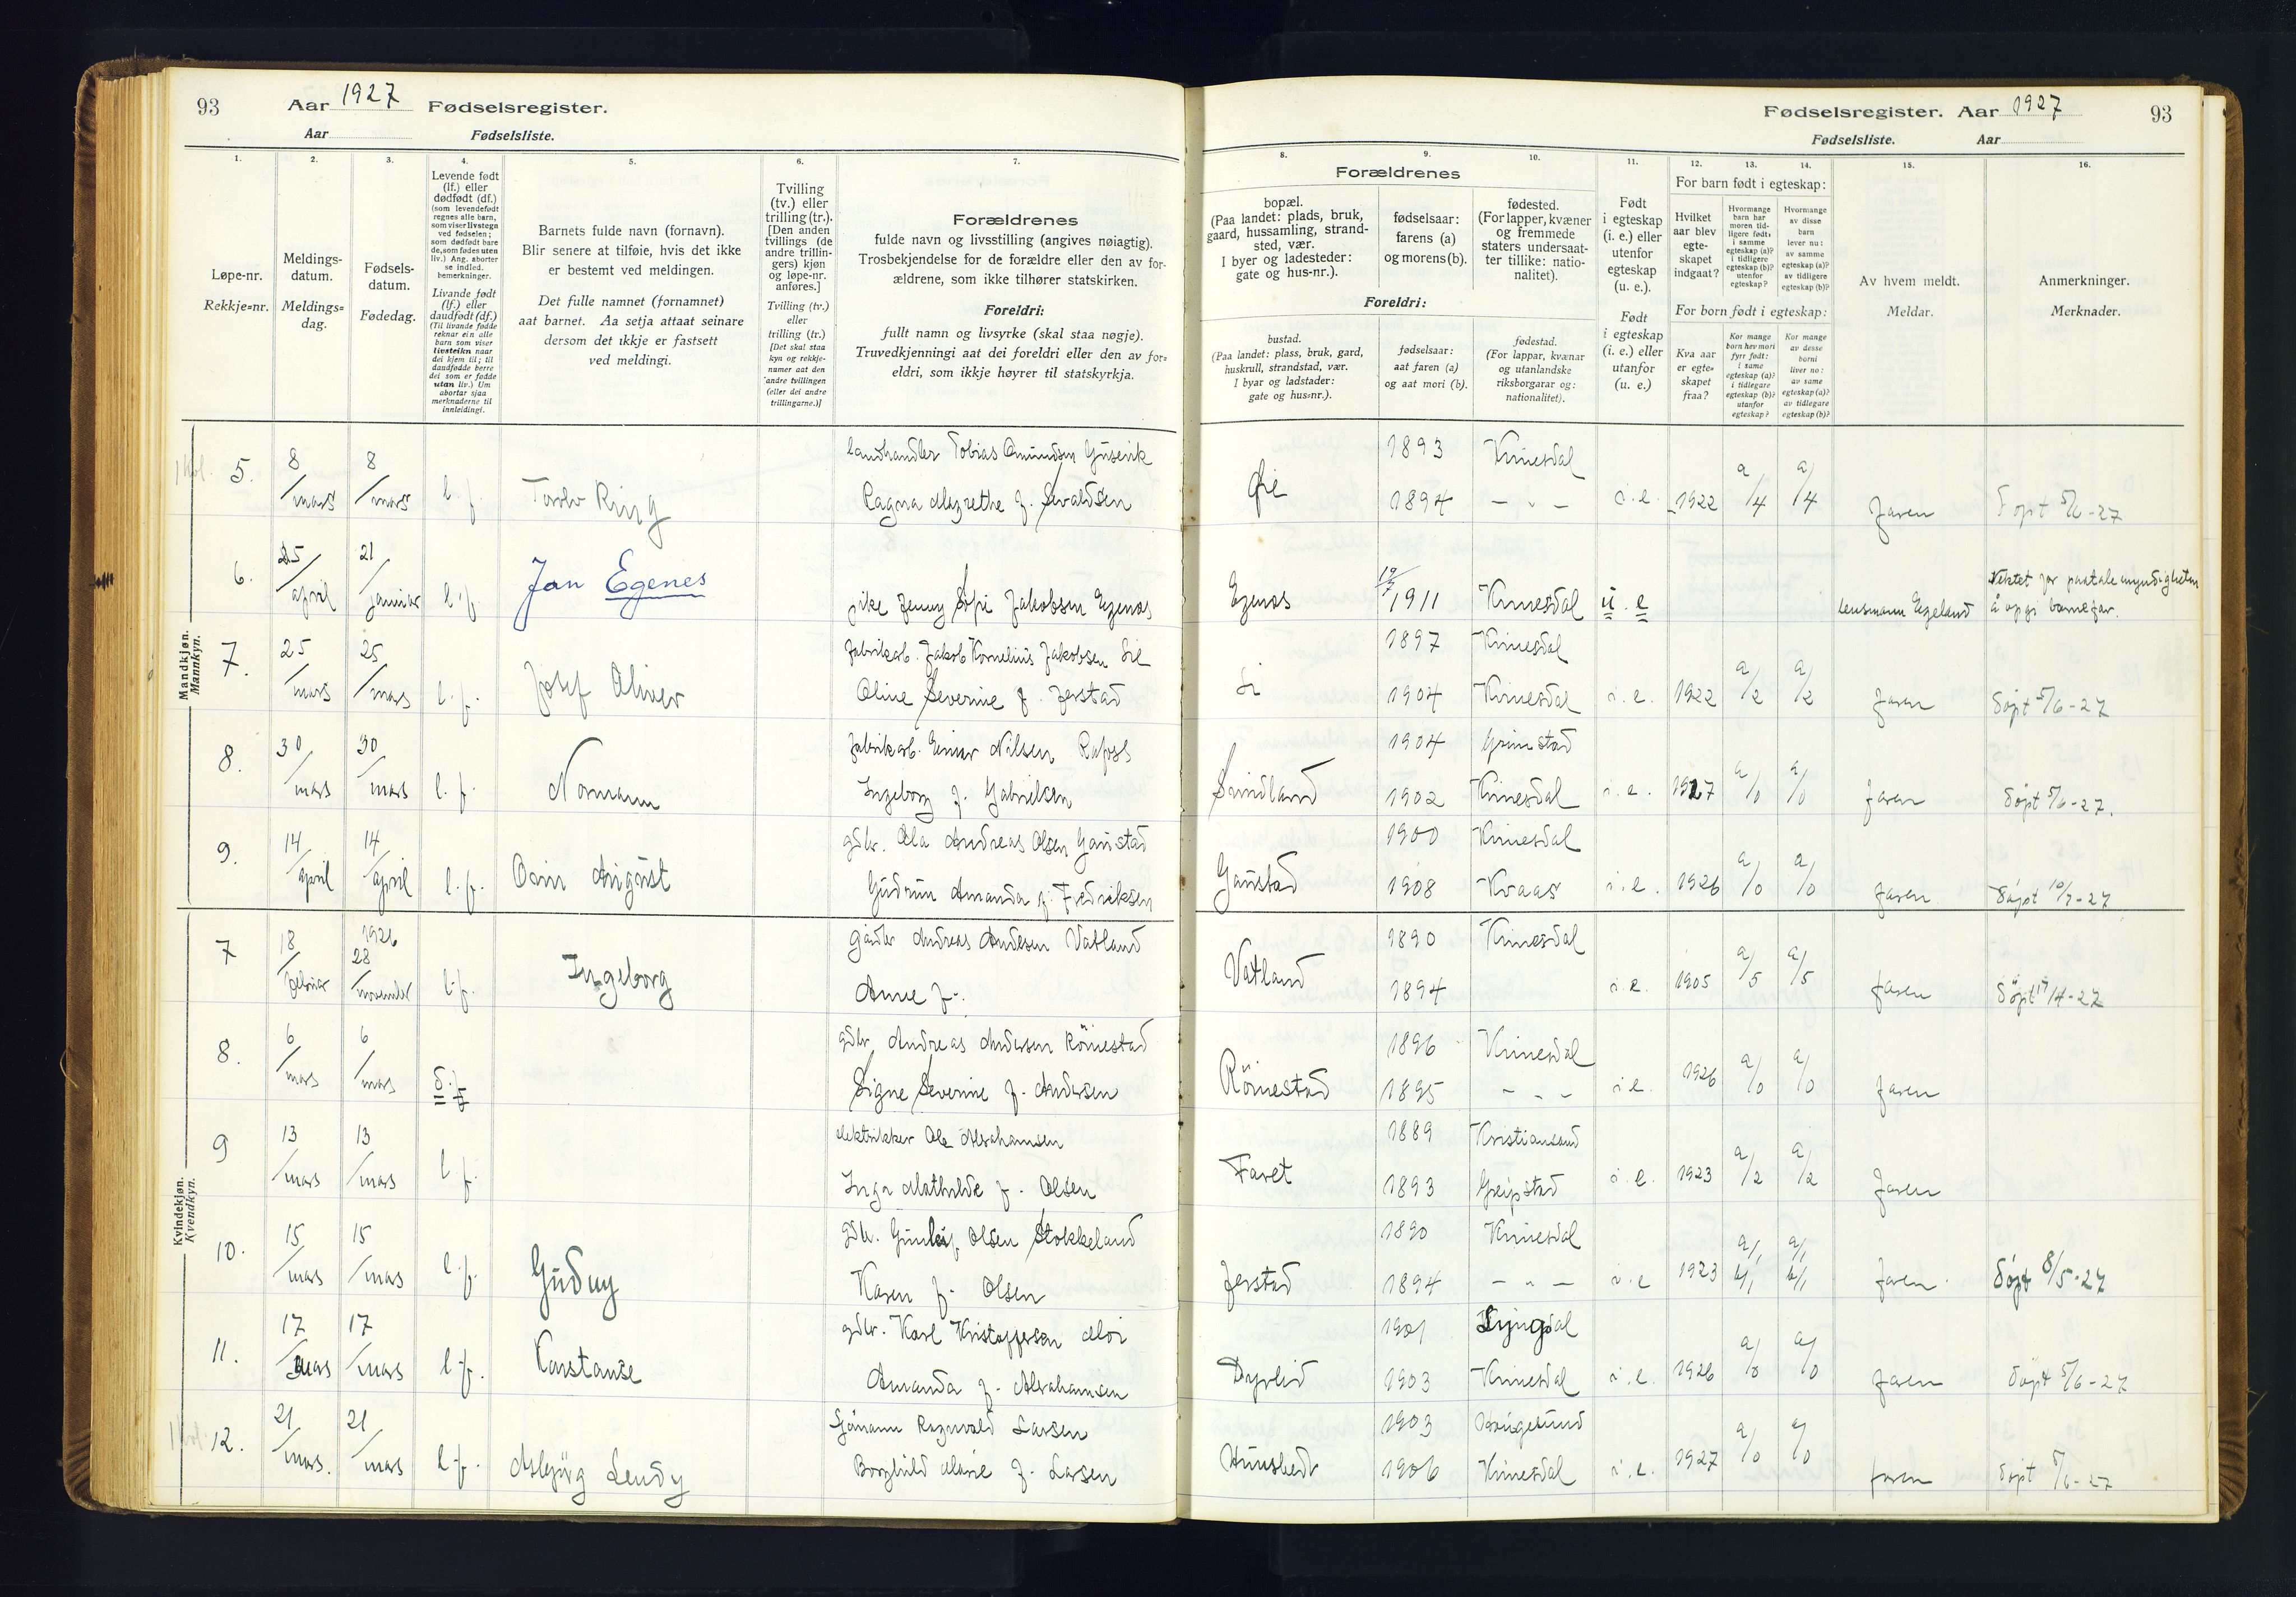 93 Aar 1927 Fødselsregister.
Aar Fødselsliste.
Fødselsregister. Aar 1927 93
Fødselsliste. Aar
1.
2.
3.
4.
5.
6.
7.
8.
9.
10.
11.
12.
13.
14.
15.
16.
Løpe-nr.
Rekkje=nr.
Meldings-
datum.
Meldings=
dag.
Fødsels-
datum.
Fødedag.
Levende født
(lf.) eller
dødfødt (df.)
(som levendefødt
regnes alle barn,
som viser livstegn
ved fødselen;
som dødfødt bare
de, som fødes uten
liv.) Ang. aborter
se indled.
bemerkninger.
Livande født
(lf.) eller
daudfødt (df.)
(Til livande fødde
reknar ein alle
barn som viser
livsteikn naar
dei kjem til; til
daudfødde berre
dei som er fødde
utan liv.) Um
abortar sjaa
merknaderne til
innleidingi.
Barnets fulde navn (fornavn).
Blir senere at tilføie, hvis det ikke
er bestemt ved meldingen.
Det fulle namnet (fornamnet)
aat barnet. Aa setja attaat seinare
dersom det ikkje er fastsett
ved meldingi.
Tvilling
(tv.) eller
trilling (tr.).
[Den anden
tvillings (de
andre trillin-
gers) kjøn
og løpe-nr.
anføres.]
Tvilling (tv.)
eller
trilling (tr.)
[Det skal staa
kyn og rekkje-
numer aat den
andre tvillingen
(eller dei andre
trillingarne.)]
Forældrenes
fulde navn og livsstilling (angives nøiagtig).
Trosbekjendelse for de forældre eller den av for-
ældrene, som ikke tilhører statskirken.
Foreldri:
fullt namn og livsyrke (skal staa nøgje).
Truvedkjenningi aat dei foreldri eller den av for=
eldri, som ikkje høyrer til statskyrkja.
Forældrenes
bopæl.
(Paa landet: plads, bruk,
gaard, hussamling, strand-
sted, vær.
I byer og ladesteder:
gate og hus-nr.).
fødselsaar:
farens (a)
og morens (b).
fødested.
(For lapper, kvæner
og fremmede
staters undersaat-
ter tillike: natio-
nalitet).
Foreldri:
bustad.
(Paa landet: plass, bruk, gard,
huskrull, strandstad, vær.
I byar og ladstader:
gate og hus=nr.).
fødselsaar:
aat faren (a)
og aat mori (b).
fødestad.
(For lappar, kvænar
og utanlandske
riksborgarar og:
nationalitet).
Født
i egteskap
(i. e.) eller
utenfor
egteskap
(u. e.).
Født
i egteskap
(i. e.) eller
utanfor
(u. e.)
For barn født i egteskap:
Hvilket
aar blev
egte-
skapet
indgaat?
Hvormange
barn har
moren tid-
ligere født:
i samme
egteskap (a)?
i tidligere
egteskap (b)?
utenfor
egteskap?
Hvormange
av disse
barn
lever nu:
av samme
egteskap (a)?
av tidligere
egteskap (b)?
For born født i egteskap:
Kva aar
er egte=
skapet
fraa?
Kor mange
born hev mori
fyrr født:
i same
egteskap (a)?
i tidlegare
egteskap (b)?
utanfor
egteskap?
Kor mange
av desse
borni
liver no:
av same
egteskap (a)?
av tidlegare
egteskap (b)?
Av hvem meldt.
Meldar.
Anmerkninger.
Merknader.
Mandkjøn.
Mannkyn.
5. 8/mars 8/mars l. f. landhandler Tobias Gusevik Øie 1893 Kvinesdal
Ragna f. Sivaldsen 1894 - " - i. e. 1922 a/4 a/4 faren Døpt 5/6-27
6. 25/april 21/januar l. f. Jan Egenes pike Jenny Sofie Jakobsen Egenes Egenes 19/7 1911 Kvinesdal u. e. lensmann Egeland Nektet for paatalemyndigheten
å opgi barnefar.
7. 25/mars 25/mars l. f. Josef Oliver fabrikarb. Jakob Kornelius Jakobsen 1897 Kvinesdal
Oline Severine f. Jerstad 1904 Kvinesdal i. e. 1922 a/2 a/2 faren Døpt 5/6-27
8. 30/mars 30/mars l. f. Normann fabrikarb. Einar Nilsen Rafoss Smidland 1904 Grimstad
Ingeborg f. Gabrielsen 1902 Kvinesdal i. e. 1927 a/0 a/0 faren Døpt 5/6-27.
9. 14/april 14/april l. f. August gdbr. Ola Andreas Olsen Gaustad Gaustad 1900 Kvinesdal
Gudrun Amanda f. Fredriksen 1908 Kvaas i. e. 1926 a/0 a/0 faren Døpt 10/7-27
Kvindekjøn.
Kvendkyn.
7 18/februar 1926 28/november l. f. Ingeborg gårdbr Andreas Andersen Vatland Vatland 1890 Kvinesdal
Anne f. 1894 i. e. 1905 a/5 a/5 faren Døpt 17/4-27
8. 6/mars 6/mars d. f. gdbr. Andreas Andersen Röinestad Röinestad 1896 Kvinesdal
Signe Severine f. Andersen 1895 - " - i. e. 1926 a/0 a/0 faren
9 13/mars 13/mars l. f. elektrikker Ole Abrahamsen Faret 1889 Kristiansand
Inga Mathilde f. Olsen 1893 Greipstad i. e. 1923 a/2 a/2 faren
10. 15/mars 15/mars l. f. Gudny gdbr. Gunleif Olsen Stokkeland Jerstad 1890 Kvinesdal
Karen f. Olsen 1894 - " - i. e 1923 a/1 b/1 a/1 b/1 faren Døpt 8/5-27
11. 17/mars 17/mars l. f. Konstanse gdbr. Karl Kristoffersen Moi Dyrlid 1901 Lyngdal
Amanda f. Abrahamsen 1903 Kvinesdal i. e. 1926 a/0 a/0 faren Døpt 5/6-27
12. 21/mars. 21/mars l. f. Asbjørg Lendy Sjømann Ragnvald Larsen Hunsbedt 1903 Haugesund
Borghild Marie f. Larsen 1906 Kvinesdal i. e. 1927 a/0 a/0 faren Døpt 5/6-27